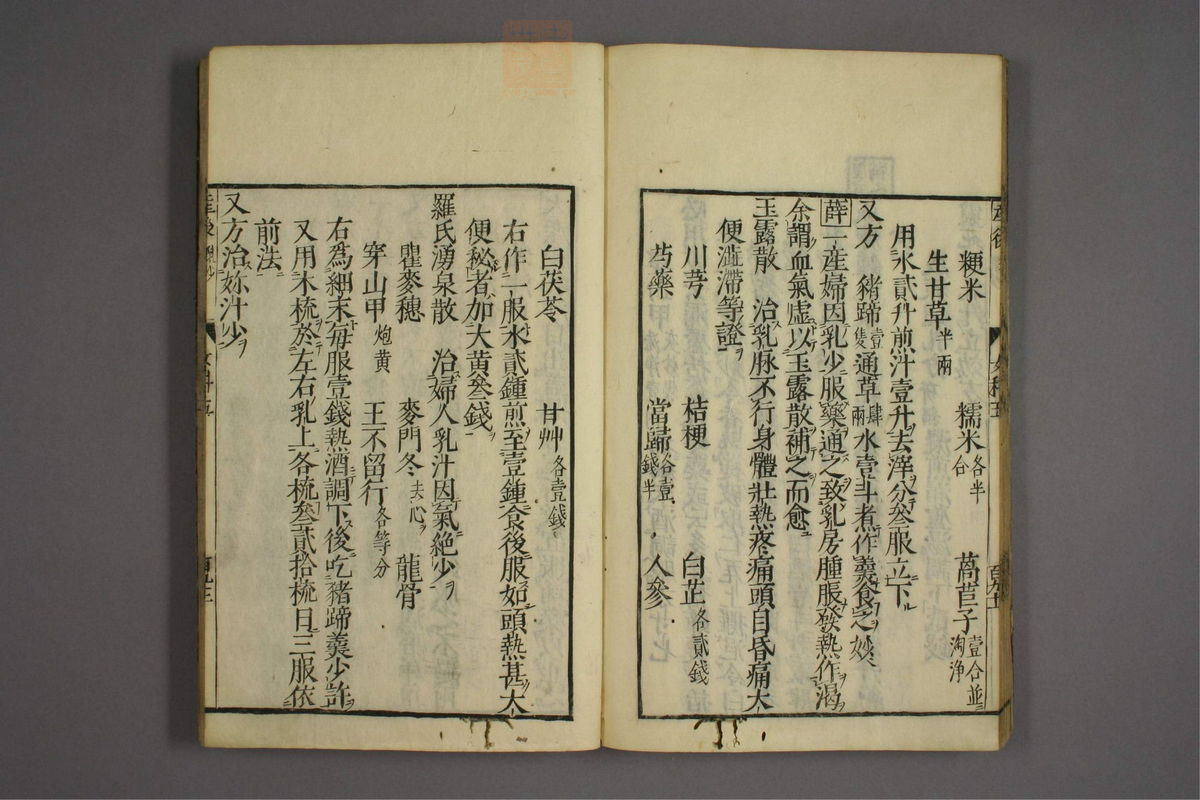 粳米　糯米各半合　萵苣子壹合並淘淨
生甘草半兩
用水貳升煎汁壹升去滓分叄服立下
又方　豬蹄壹隻通草肆兩水壹斗煮作羹食之妙
薛一產婦因乳少服藥通之致乳房腫脹發熱作渴
余謂血氣虛以玉露散補之而愈
玉露散　治乳脉不行身體壯熱疼痛頭目昏痛大
便澁滯等證
川芎　桔梗　白芷各貳錢
芍藥　當歸各壹錢半　人參
白茯苓　甘艸各壹錢
右作一服水貳鍾煎至壹鍾食後服如頭熱甚大
便秘者加大黄叄錢
羅氏湧泉散　治婦人乳汁因氣絶少
瞿麥穗　麥門冬去心　龍骨
穿山甲炮黄　王不留行各等分
右爲細末每服壹錢熱酒調下後吃豬蹄羹少許
又用木梳於左右乳上各梳叄貳拾梳日三服依
前法
又方治妳汁少